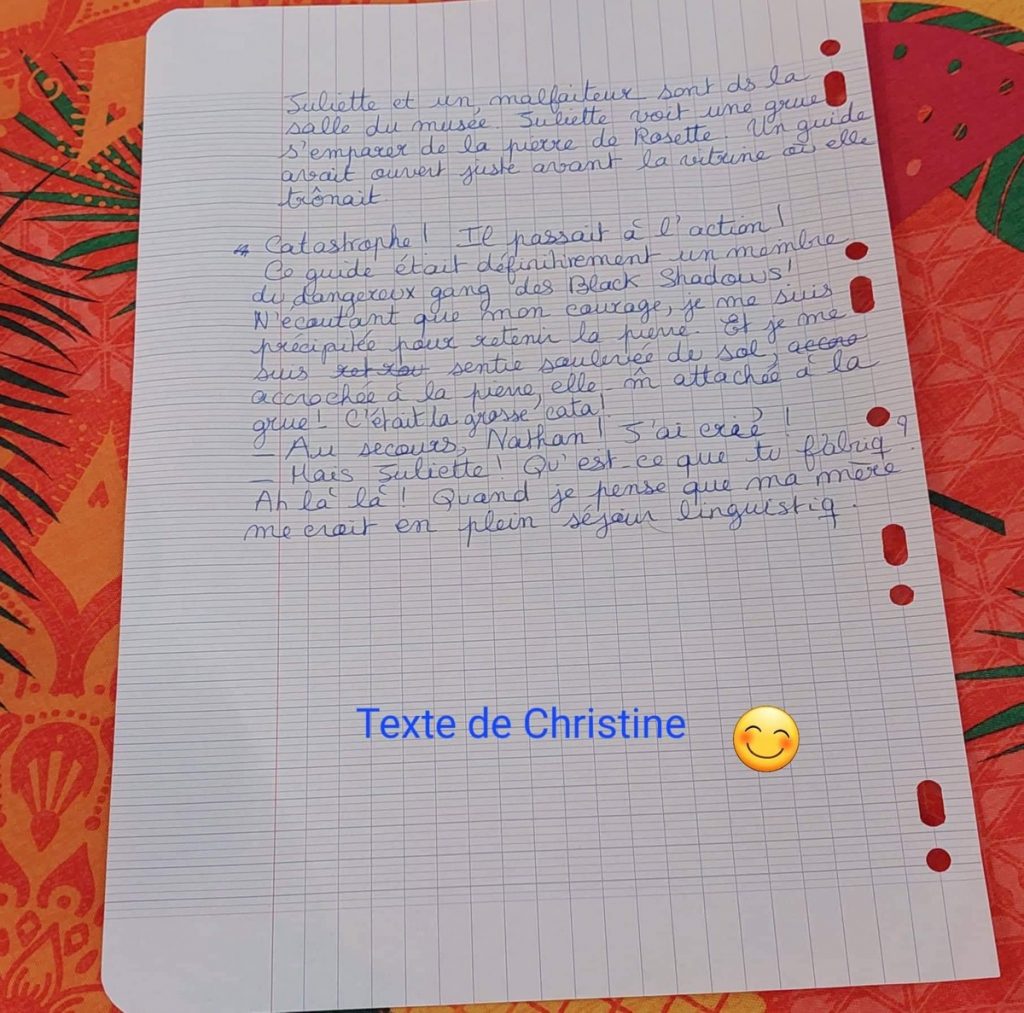 Juliette et un, malfaiteur sont ds la
salle du musée. Juliette voit une grue
s'emparer de la pierre de Rosette. Un guide
avait ouvert juste avant la vitrine où elle
trônait.
Catastrophe ! Il passait à l'action !
Ce guide était définitivement un membre
du dangereux gang des Black Shadows !
N'écoutant que mon courage, je me suis
précipitée pour retenir la pierre. Et je me
suis sentie soulevée du sol, accro
accrochée à la pierre, elle-m̂ attachée à la
grue ! C'était la grosse cata !
_ Au secours, Nathan ! J'ai crié !
_ Mais Juliette ! Qu'est-ce que tu fabriq ?
Ah là là ! Quand je pense que ma mère
me croit en plein séjour linguistiq.
Texte de Christine